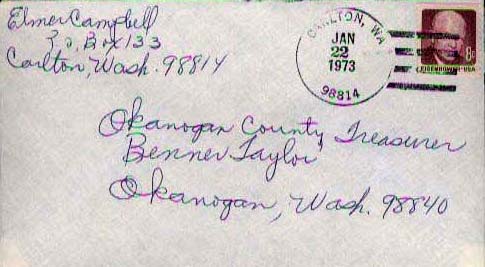 Elmer Campbell
P.O. Box 133
Carlton, Wash. 98814
CARLTON, WA
JAN
22
1973
98814
8c
EISENHOWER·USA
Okanogan County Treasurer
Benner Taylor
Okanogan, Wash. 98840